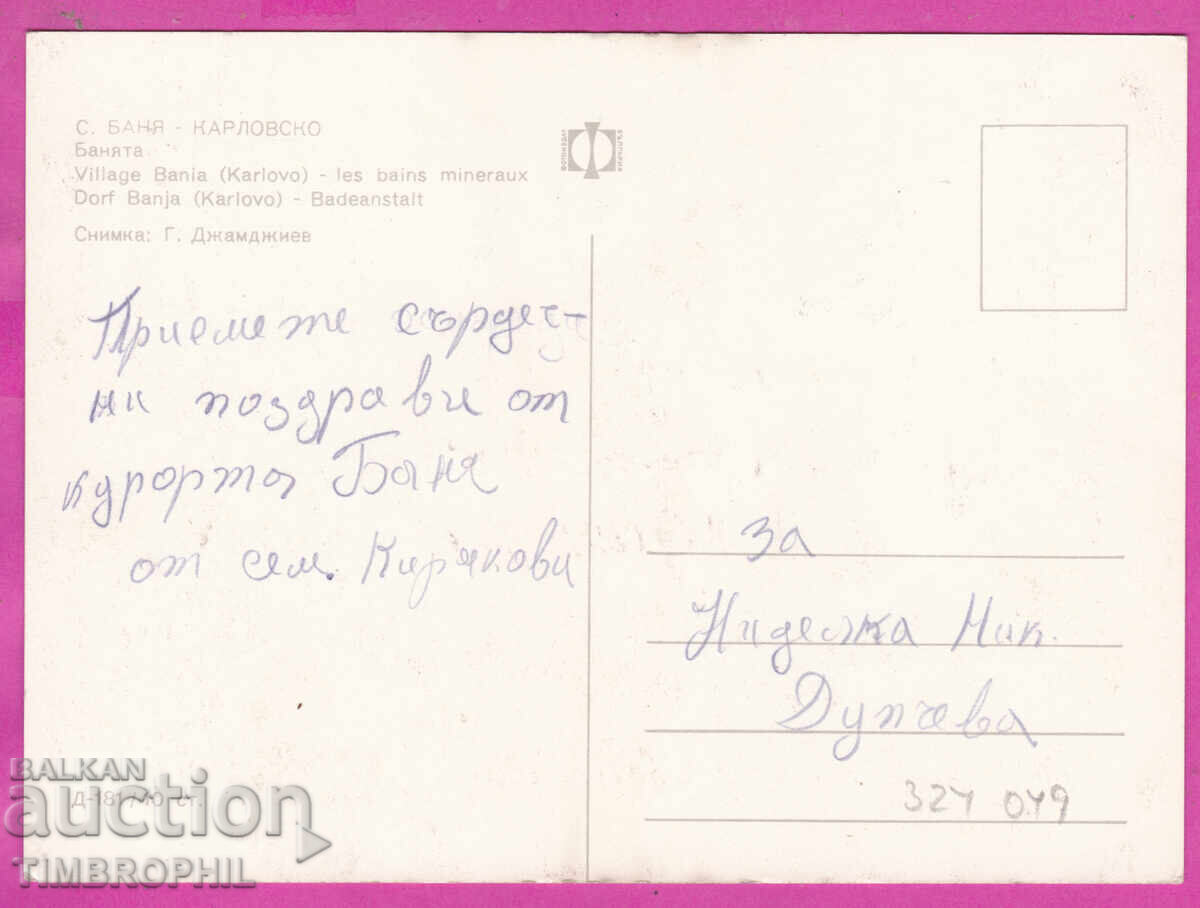 С. БАНЯ - КАРЛОВСКО
Банята
Village Bania (Karlovo) - les bains mineraux
Dorf Banja (Karlovo) - Badeanstalt
Снимка: Г. Джамджиев
Приемете сърдеч-
ни поздрави от
курорта Баня
от сем. Кирякови
за
Надежка Ник.
Дупчева
324 049
Д-181/10 ст.
BALKAN
auction
TIMBROPHIL